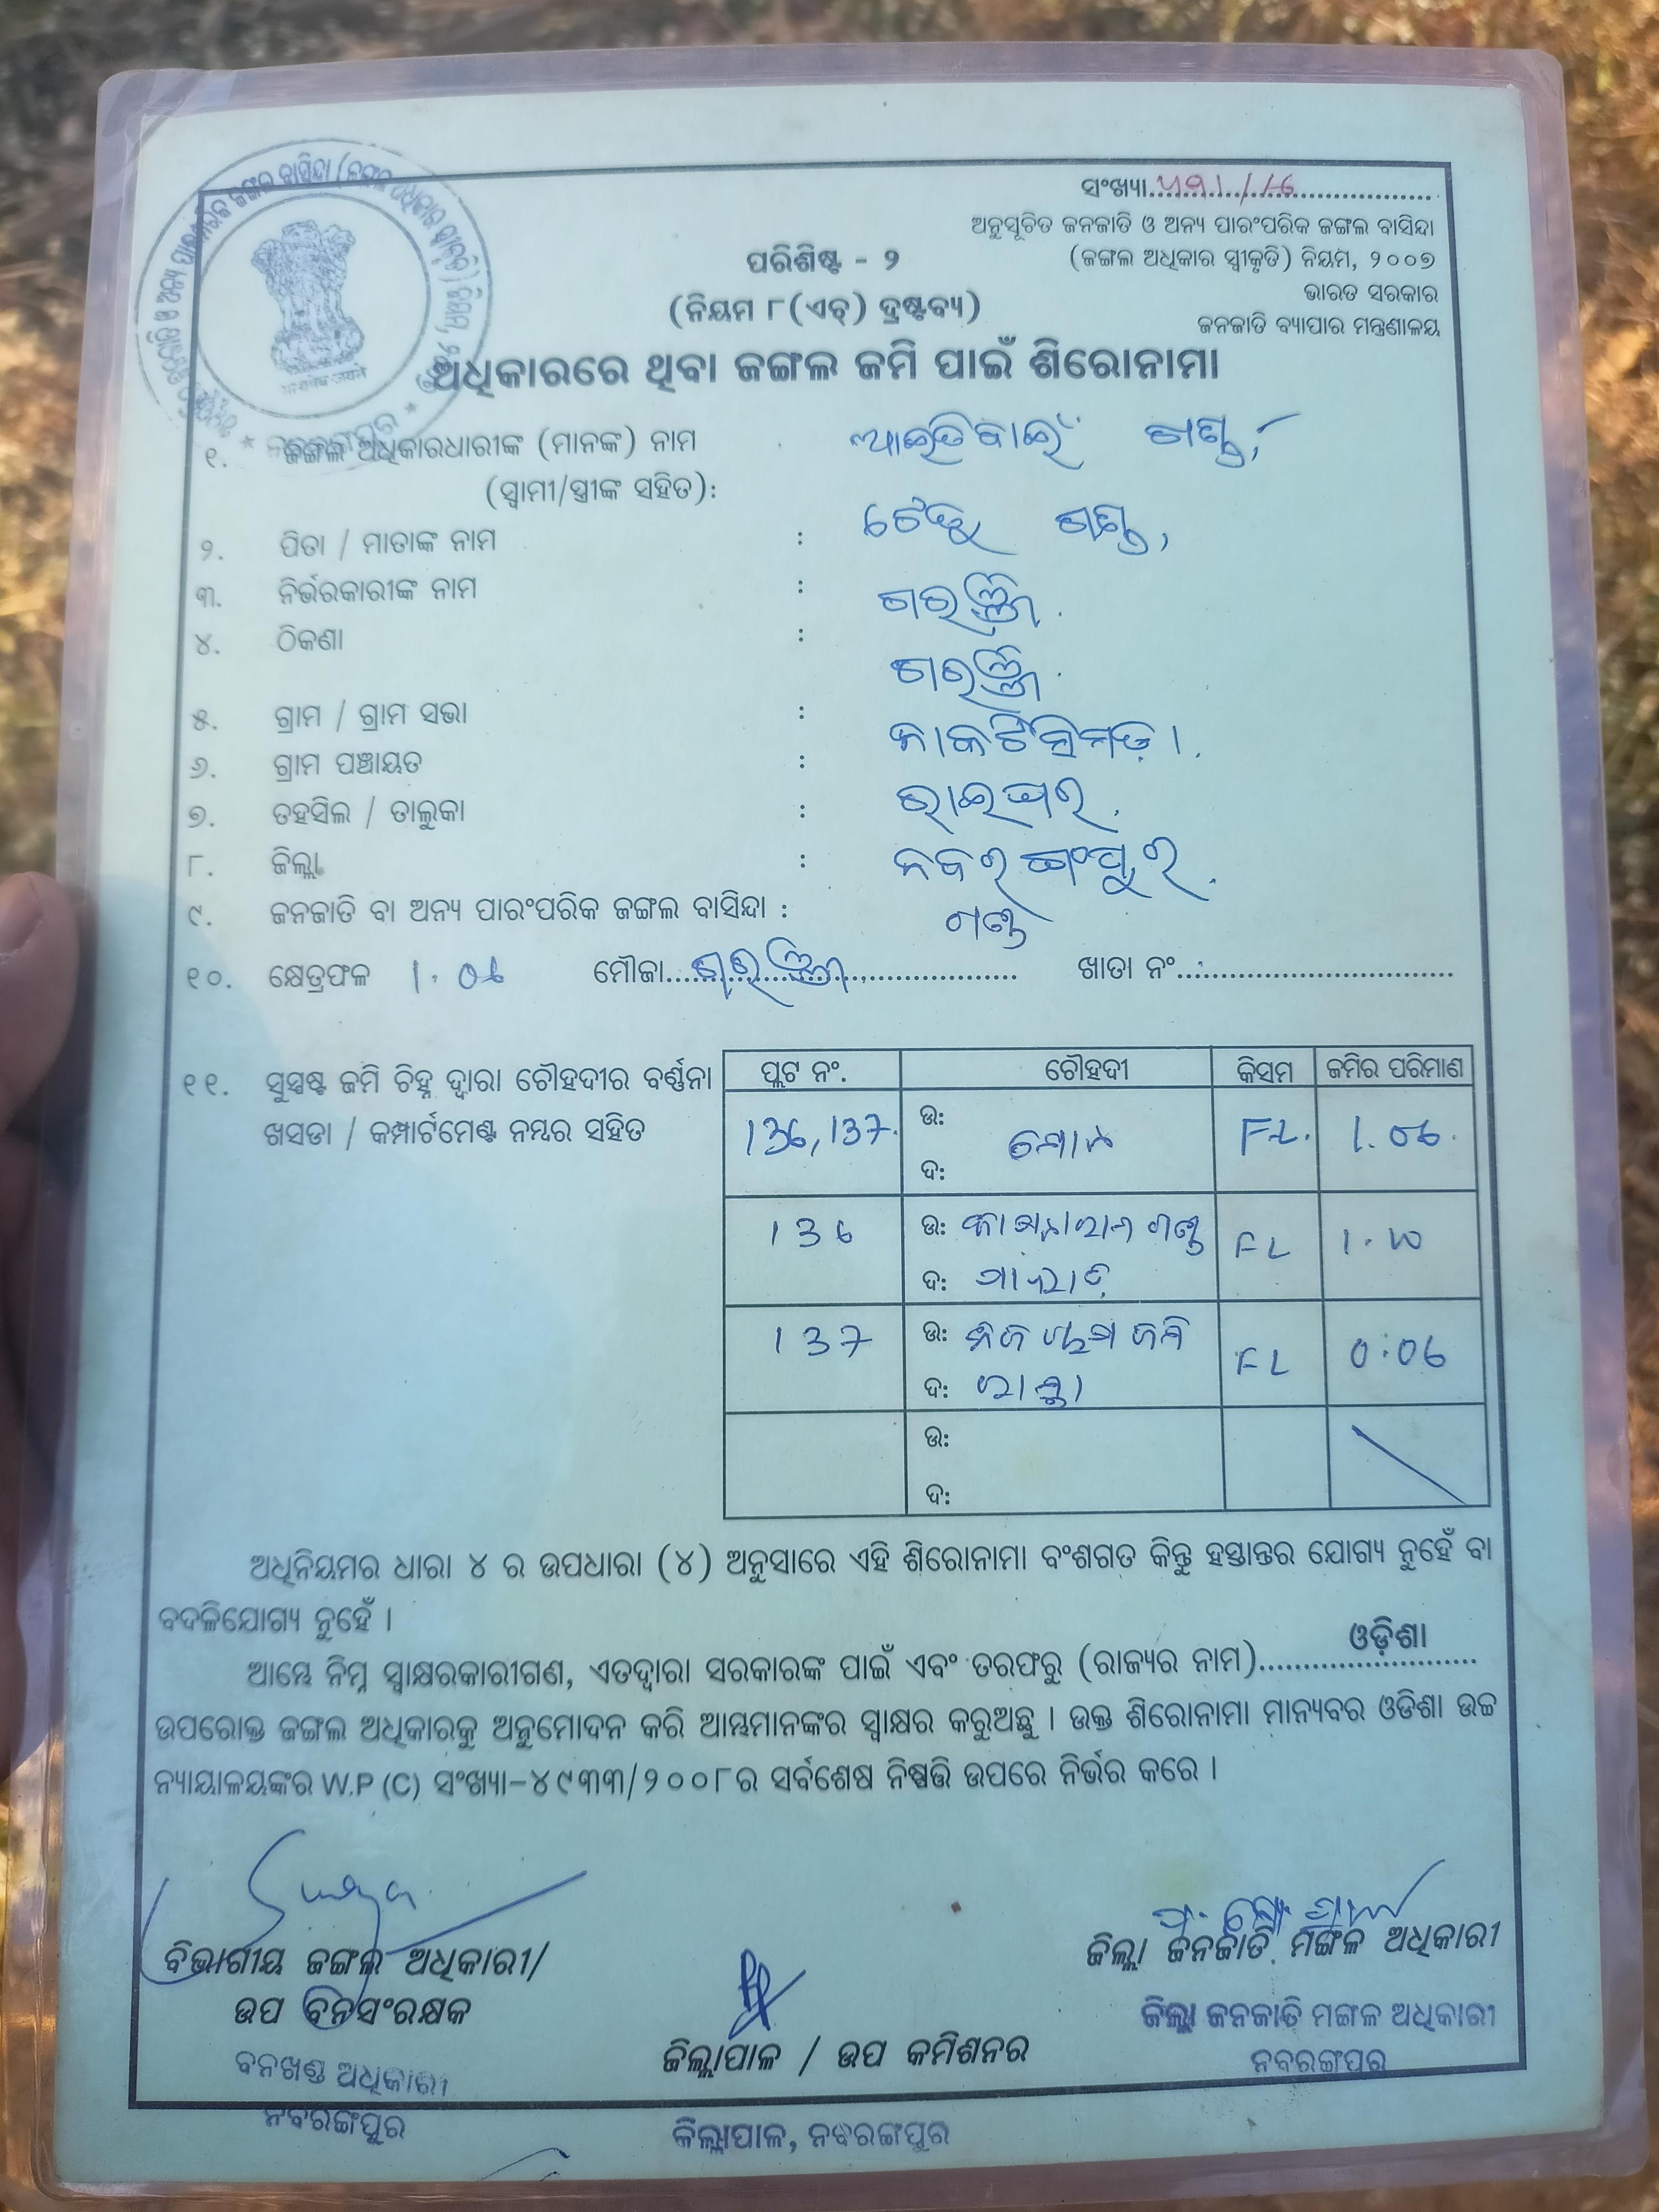 ସଂଖ୍ୟା
ଅନୁସୂଚିତ ଜନଜାତି ଓ ଅନ୍ୟ ପାରଂପରିକ ଜଙ୍ଗଲ ବାସିନ୍ଦା
(ଜଙ୍ଗଲ ଅଧିକାର ସ୍ୱୀକୃତି) ନିୟମ, ୨୦୦୭
ଭାରତ ସରକାର
ଜନଜାତି ବ୍ୟାପାର ମନ୍ତ୍ରଣାଳୟ
ପରିଶିଷ୍ଟ - ୨
(ନିୟମ ୮(ଏଚ୍) ଦ୍ରଷ୍ଟବ୍ୟ)
ଅଧିକାରରେ ଥିବା ଜଙ୍ଗଲ ଜମି ପାଇଁ ଶିରୋନାମା
୧. ଜଙ୍ଗଲ ଅଧିକାରଧାରୀଙ୍କ (ମାନଙ୍କ) ନାମ
(ସ୍ୱାମୀ/ସ୍ତ୍ରୀଙ୍କ ସହିତ):
୨. ପିତା / ମାତାଙ୍କ ନାମ :
୩. ନିର୍ଭରକାରୀଙ୍କ ନାମ :
୪. ଠିକଣା :
୫. ଗ୍ରାମ / ଗ୍ରାମ ସଭା :
୬. ଗ୍ରାମ ପଞ୍ଚାୟତ :
୭. ତହସିଲ / ତାଲୁକା : ରାଇଘର
୮. ଜିଲ୍ଲା : ନବରଙ୍ଗପୁର
୯. ଜନଜାତି ବା ଅନ୍ୟ ପାରଂପରିକ ଜଙ୍ଗଲ ବାସିନ୍ଦା : ଗଣ୍ଡ
୧୦. କ୍ଷେତ୍ରଫଳ 1.06 ମୌଜା ଖାତା ନଂ.
୧୧. ସୁସ୍ପଷ୍ଟ ଜମି ଚିହ୍ନ ଦ୍ୱାରା ଚୌହଦୀର ବର୍ଣ୍ଣନା
ଖସଡା / କମ୍ପାର୍ଟମେଣ୍ଟ ନମ୍ବର ସହିତ
ପ୍ଲଟ ନଂ. ଚୌହଦୀ କିସମ ଜମିର ପରିମାଣ
136, 137. ଉ: FL. 1.06.
ଦ:
136 ଉ: ଗଣ୍ଡ FL
ଦ:
137 ଉ: FL 0.06
ଦ: ରାସ୍ତା
ଉ:
ଦ:
ଅଧିନିୟମର ଧାରା ୪ ର ଉପଧାରା (୪) ଅନୁସାରେ ଏହି ଶିରୋନାମା ବଂଶଗତ କିନ୍ତୁ ହସ୍ତାନ୍ତର ଯୋଗ୍ୟ ନୁହେଁ ବା
ବଦଳିଯୋଗ୍ୟ ନୁହେଁ ।
ଆମ୍ଭେ ନିମ୍ନ ସ୍ୱାକ୍ଷରକାରୀଗଣ, ଏତଦ୍ୱାରା ସରକାରଙ୍କ ପାଇଁ ଏବଂ ତରଫରୁ (ରାଜ୍ୟର ନାମ) ଓଡ଼ିଶା
ଉପରୋକ୍ତ ଜଙ୍ଗଲ ଅଧିକାରକୁ ଅନୁମୋଦନ କରି ଆମ୍ଭମାନଙ୍କର ସ୍ୱାକ୍ଷର କରୁଅଛୁ । ଉକ୍ତ ଶିରୋନାମା ମାନ୍ୟବର ଓଡିଶା ଉଚ୍ଚ
ନ୍ୟାୟାଳୟଙ୍କର W.P (C) ସଂଖ୍ୟା-୪୯୩୩/୨୦୦୮ର ସର୍ବଶେଷ ନିଷ୍ପତ୍ତି ଉପରେ ନିର୍ଭର କରେ ।
ବିଭାଗୀୟ ଜଙ୍ଗଲ ଅଧିକାରୀ/
ଉପ ବନସଂରକ୍ଷକ
ବନଖଣ୍ଡ ଅଧିକାରୀ
ନବରଙ୍ଗପୁର
ଜିଲ୍ଲାପାଳ / ଉପ କମିଶନର
ଜିଲ୍ଲାପାଳ, ନବରଙ୍ଗପୁର
ଜିଲ୍ଲା ଜନଜାତି ମଙ୍ଗଳ ଅଧିକାରୀ
ଜିଲ୍ଲା ଜନଜାତି ମଙ୍ଗଳ ଅଧିକାରୀ
ନବରଙ୍ଗପୁର